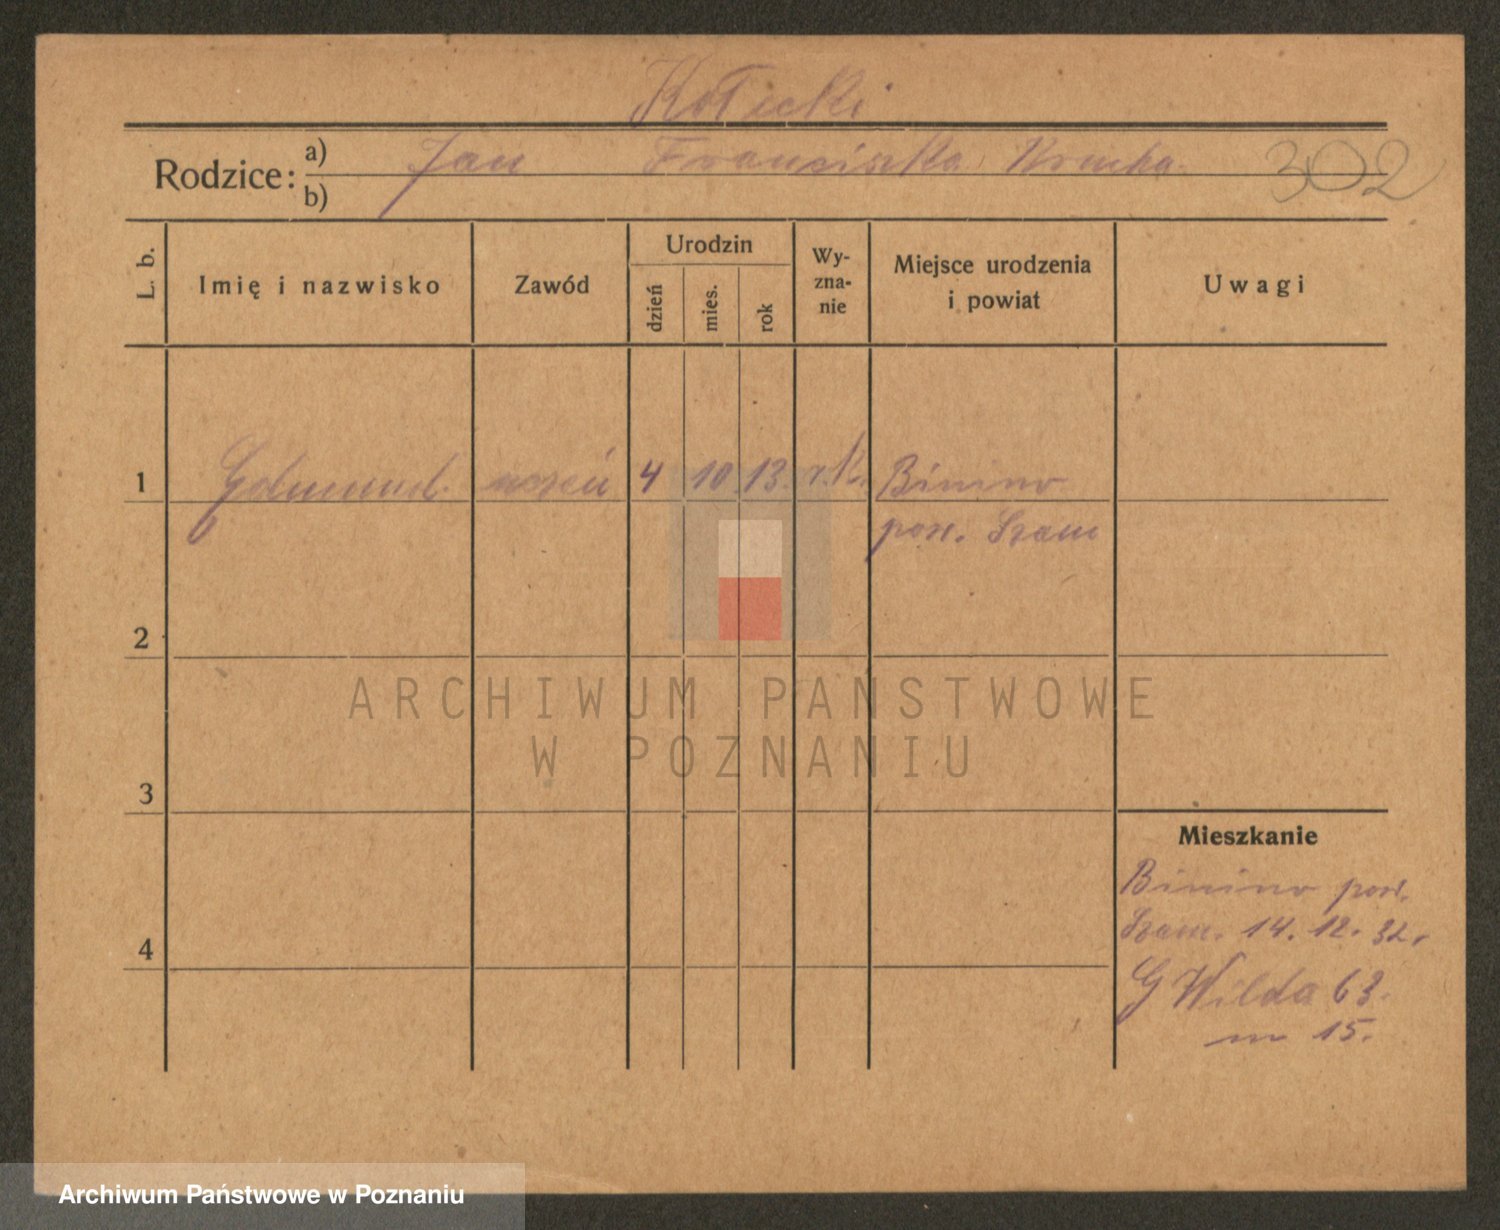 Kotecki
Rodzice: a) Jan Franciszka
b)
302
L. b.
Imię i nazwisko
Zawód
Urodzin
dzień
mies.
rok
Wy-
zna-
nie
Miejsce urodzenia
i powiat
Uwagi
1 Edmund. uczeń 4 10. 13. r.k. Binino
pow. Szam
2
3
4
Mieszkanie
Binino pow.
Szam. 14. 12. 32.
G Wilda 63.
m 15.
ARCHIWUM PAŃSTWOWE
W POZNANIU
Archiwum Państwowe w Poznaniu